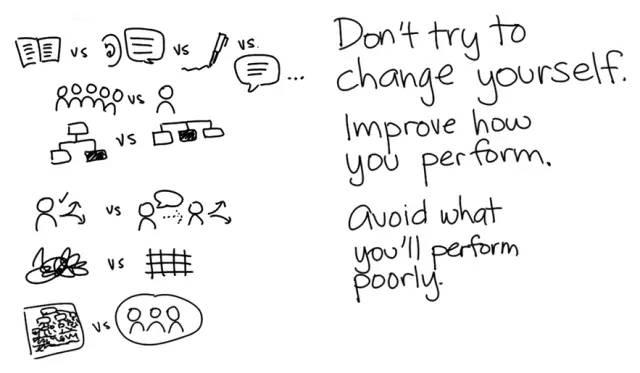 vs vs vs.
vs
vs
vs
vs
vs
Don't try to
change yourself.
Improve how
you perform.
avoid what
you'll perform
poorly.